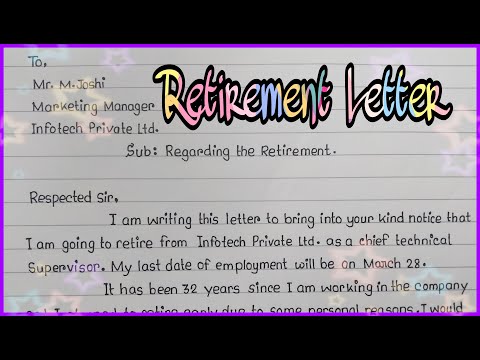 To,
Mr. M. Joshi
Marketing Manager
Retirement Letter
Infotech Private Ltd.
Sub: Regarding the Retirement.
Respected Sir,
I am writing this letter to bring into your kind notice that
I am going to retire from Infotech Private Ltd. as a chief technical
Supervisor. My last date of employment will be on March 28.
It has been 32 years since I am working in the company
to some personal reasons. I would